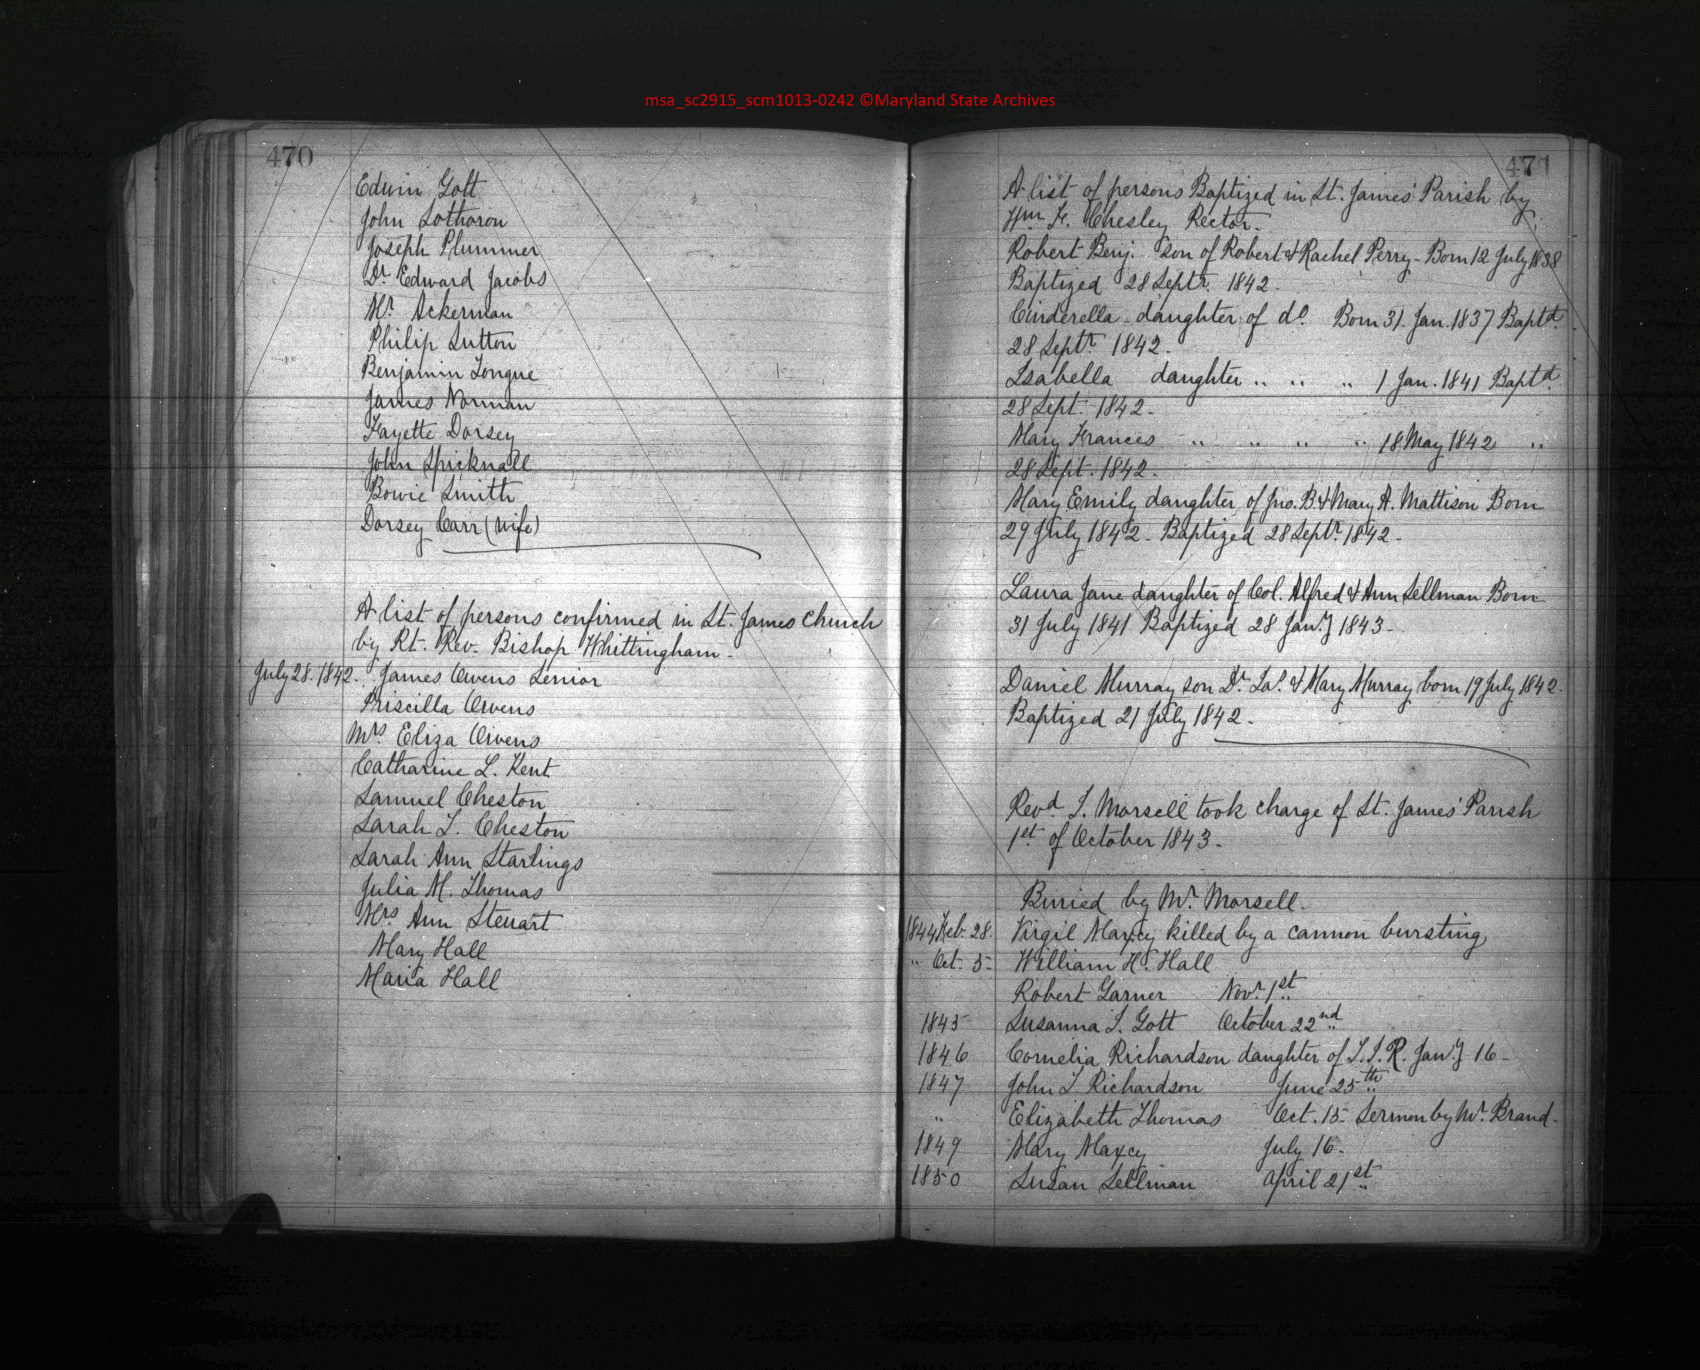 msa_sc2915_scm1013-0242 ©Maryland State Archives
470
Edwin Gott
John Sothoron
Joseph Plummer
Dr. Edward Jacobs
Mr. Ackerman
Philip Sutton
Benjamin Tongue
James Norman
Fayette Dorsey
John Spicknall
Bowie Smith
Dorsey Carr (wife)
A list of persons confirmed in St. James Church
by Rt. Rev. Bishop Whittingham.
July 28. 1842. James Owens Senior
Priscilla Owens
Mrs Eliza Owens
Catharine L. Kent
Samuel Cheston
Sarah L. Cheston
Sarah Ann Starlings
Julia M. Thomas
Mrs Ann Steuart
Mary Hall
Maria Hall
471
A list of persons Baptized in St. James' Parish by
Wm. F. Chesley Rector.
Robert Benj. son of Robert & Rachel Perry - Born 12 July 1838
Baptized 28 Septr. 1842.
Cinderella - daughter of do. Born 31 Jan. 1837 Baptd.
28 Septr. 1842.
Isabella daughter " " " 1 Jan. 1841 Baptd.
28 Sept. 1842.
Mary Frances " " " " 18 May 1842 "
28 Sept. 1842.
Mary Emily daughter of Jno. B. & Mary A. Mattison Born
29 July 1842 - Baptized 28 Septr. 1842.
Laura Jane daughter of Col. Alfred & Ann Sellman Born
31 July 1841 Baptized 28 Jany 1843.
Daniel Murray son Dr. Jas. & Mary Murray born 19 July 1842.
Baptized 21 July 1842.
Revd. J. Morsell took charge of St. James' Parish
1st of October 1843.
Buried by Mr. Morsell.
1844 Feb. 28. Virgil Maxcy killed by a cannon bursting
" Oct. 5. William H. Hall
Robert Garner Novr. 1st
1845 Susanna S. Gott October 22nd
1846 Cornelia Richardson daughter of T. J. R. Jany 16.
1847 John T. Richardson June 25th
" Elizabeth Thomas Oct. 15. Sermon by Mr. Brand.
1849 Mary Maxcy July 16.
1850 Susan Sellman April 21st